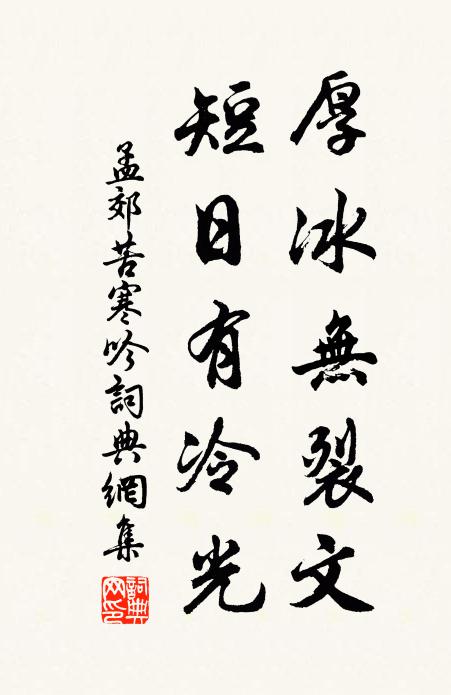 厚冰無裂文
短日有冷光
孟郊苦寒吟詞典網集
詞典
网印